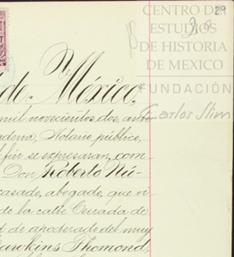 CENTRO DE
ESTUDIOS
DE HISTORIA
DE MEXICO
FUNDACIÓN
Carlos Slim
29
de México,
mil novecientos dos, ante
Notario público,
fin se expresaran, com-
Don Roberto Nú-
casado, abogado, que vi-
de la calle Cerrada de
de apoderado del muy
Thomond